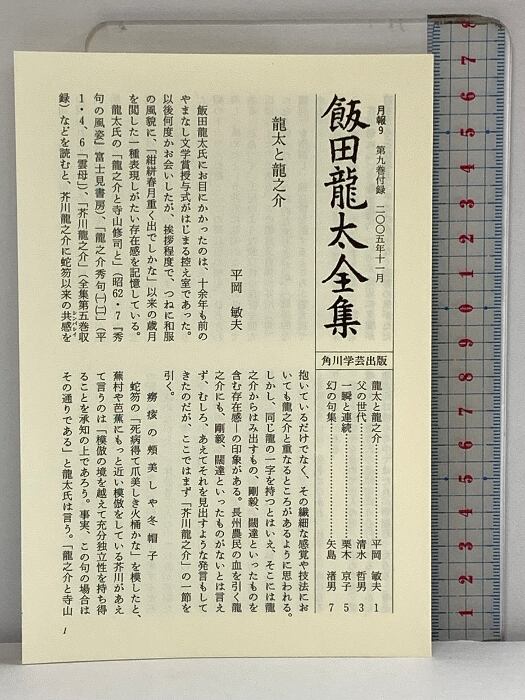 月報9 第九巻付録 二〇〇五年十一月
飯田龍太全集
角川学芸出版
龍太と龍之介…………平岡 敏夫 1
父の世代…………清水 哲男 3
一瞬と連続…………栗木 京子 5
幻の句集…………矢島 渚男 7
龍太と龍之介
平岡 敏夫
飯田龍太氏にお目にかかったのは、十余年も前の
やまなし文学賞授与式がはじまる控え室であった。
以後何度かお会いしたが、挨拶程度で、つねに和服
の風貌に、「紺絣春月重く出でしかな」以来の歳月
を閲した一種表現しがたい存在感を記憶している。
龍太氏の「龍之介と寺山修司と」(昭62・7『秀
句の風姿』富士見書房)、「龍之介秀句㈠㈡」(平
1・4、6「雲母」)、「芥川龍之介」(全集第五巻収
録)などを読むと、芥川龍之介に蛇笏以来の共感を
シンパシイ
抱いているだけでなく、その繊細な感覚や技法にお
いても龍之介と重なるところがあるように思われる。
しかし、同じ龍の一字を持つとはいえ、そこには龍
之介からはみ出すもの、剛毅、闊達といったものを
含む存在感―の印象がある。長州農民の血を引く龍
之介にも、剛毅、闊達といったものがないとは言え
ず、むしろ、あえてそれを見出すような発言もして
きたのだが、ここではまず「芥川龍之介」の一節を
引く。
癆痎の頰美しや冬帽子
蛇笏の「死病得て爪美しき火桶かな」を模したと、
蕪村や芭蕉にもっと近い模倣をしている芥川があえ
て言うのは「模倣の境を越えて充分独立性を持ち得
ることを承知の上であろう。事実、この句の場合は
その通りである」と龍太氏は言う。「龍之介と寺山
1